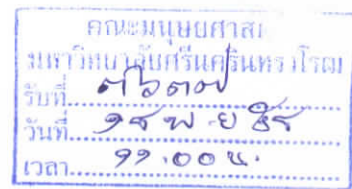 คณะมนุษยศาส
มหาวิทยาลัยศรีนครินทรวิโรฒ
รับที่
วันที่ ๑๕ พ.ย
เวลา ๑๑.๐๐ น.